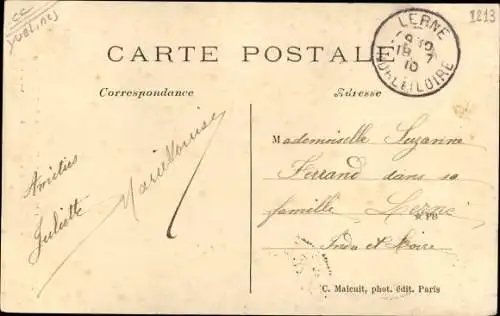 CC
YVELINES
1213
LERNE
18 7
10
INDRE ET LOIRE
CARTE POSTALE
Correspondance
Adresse
Amitiés
Juliette
Marie Louise
Mademoiselle Suzanne
Ferrand dans sa
famille Lerné
Indre et Loire
C. Malcuit, phot. édit. Paris